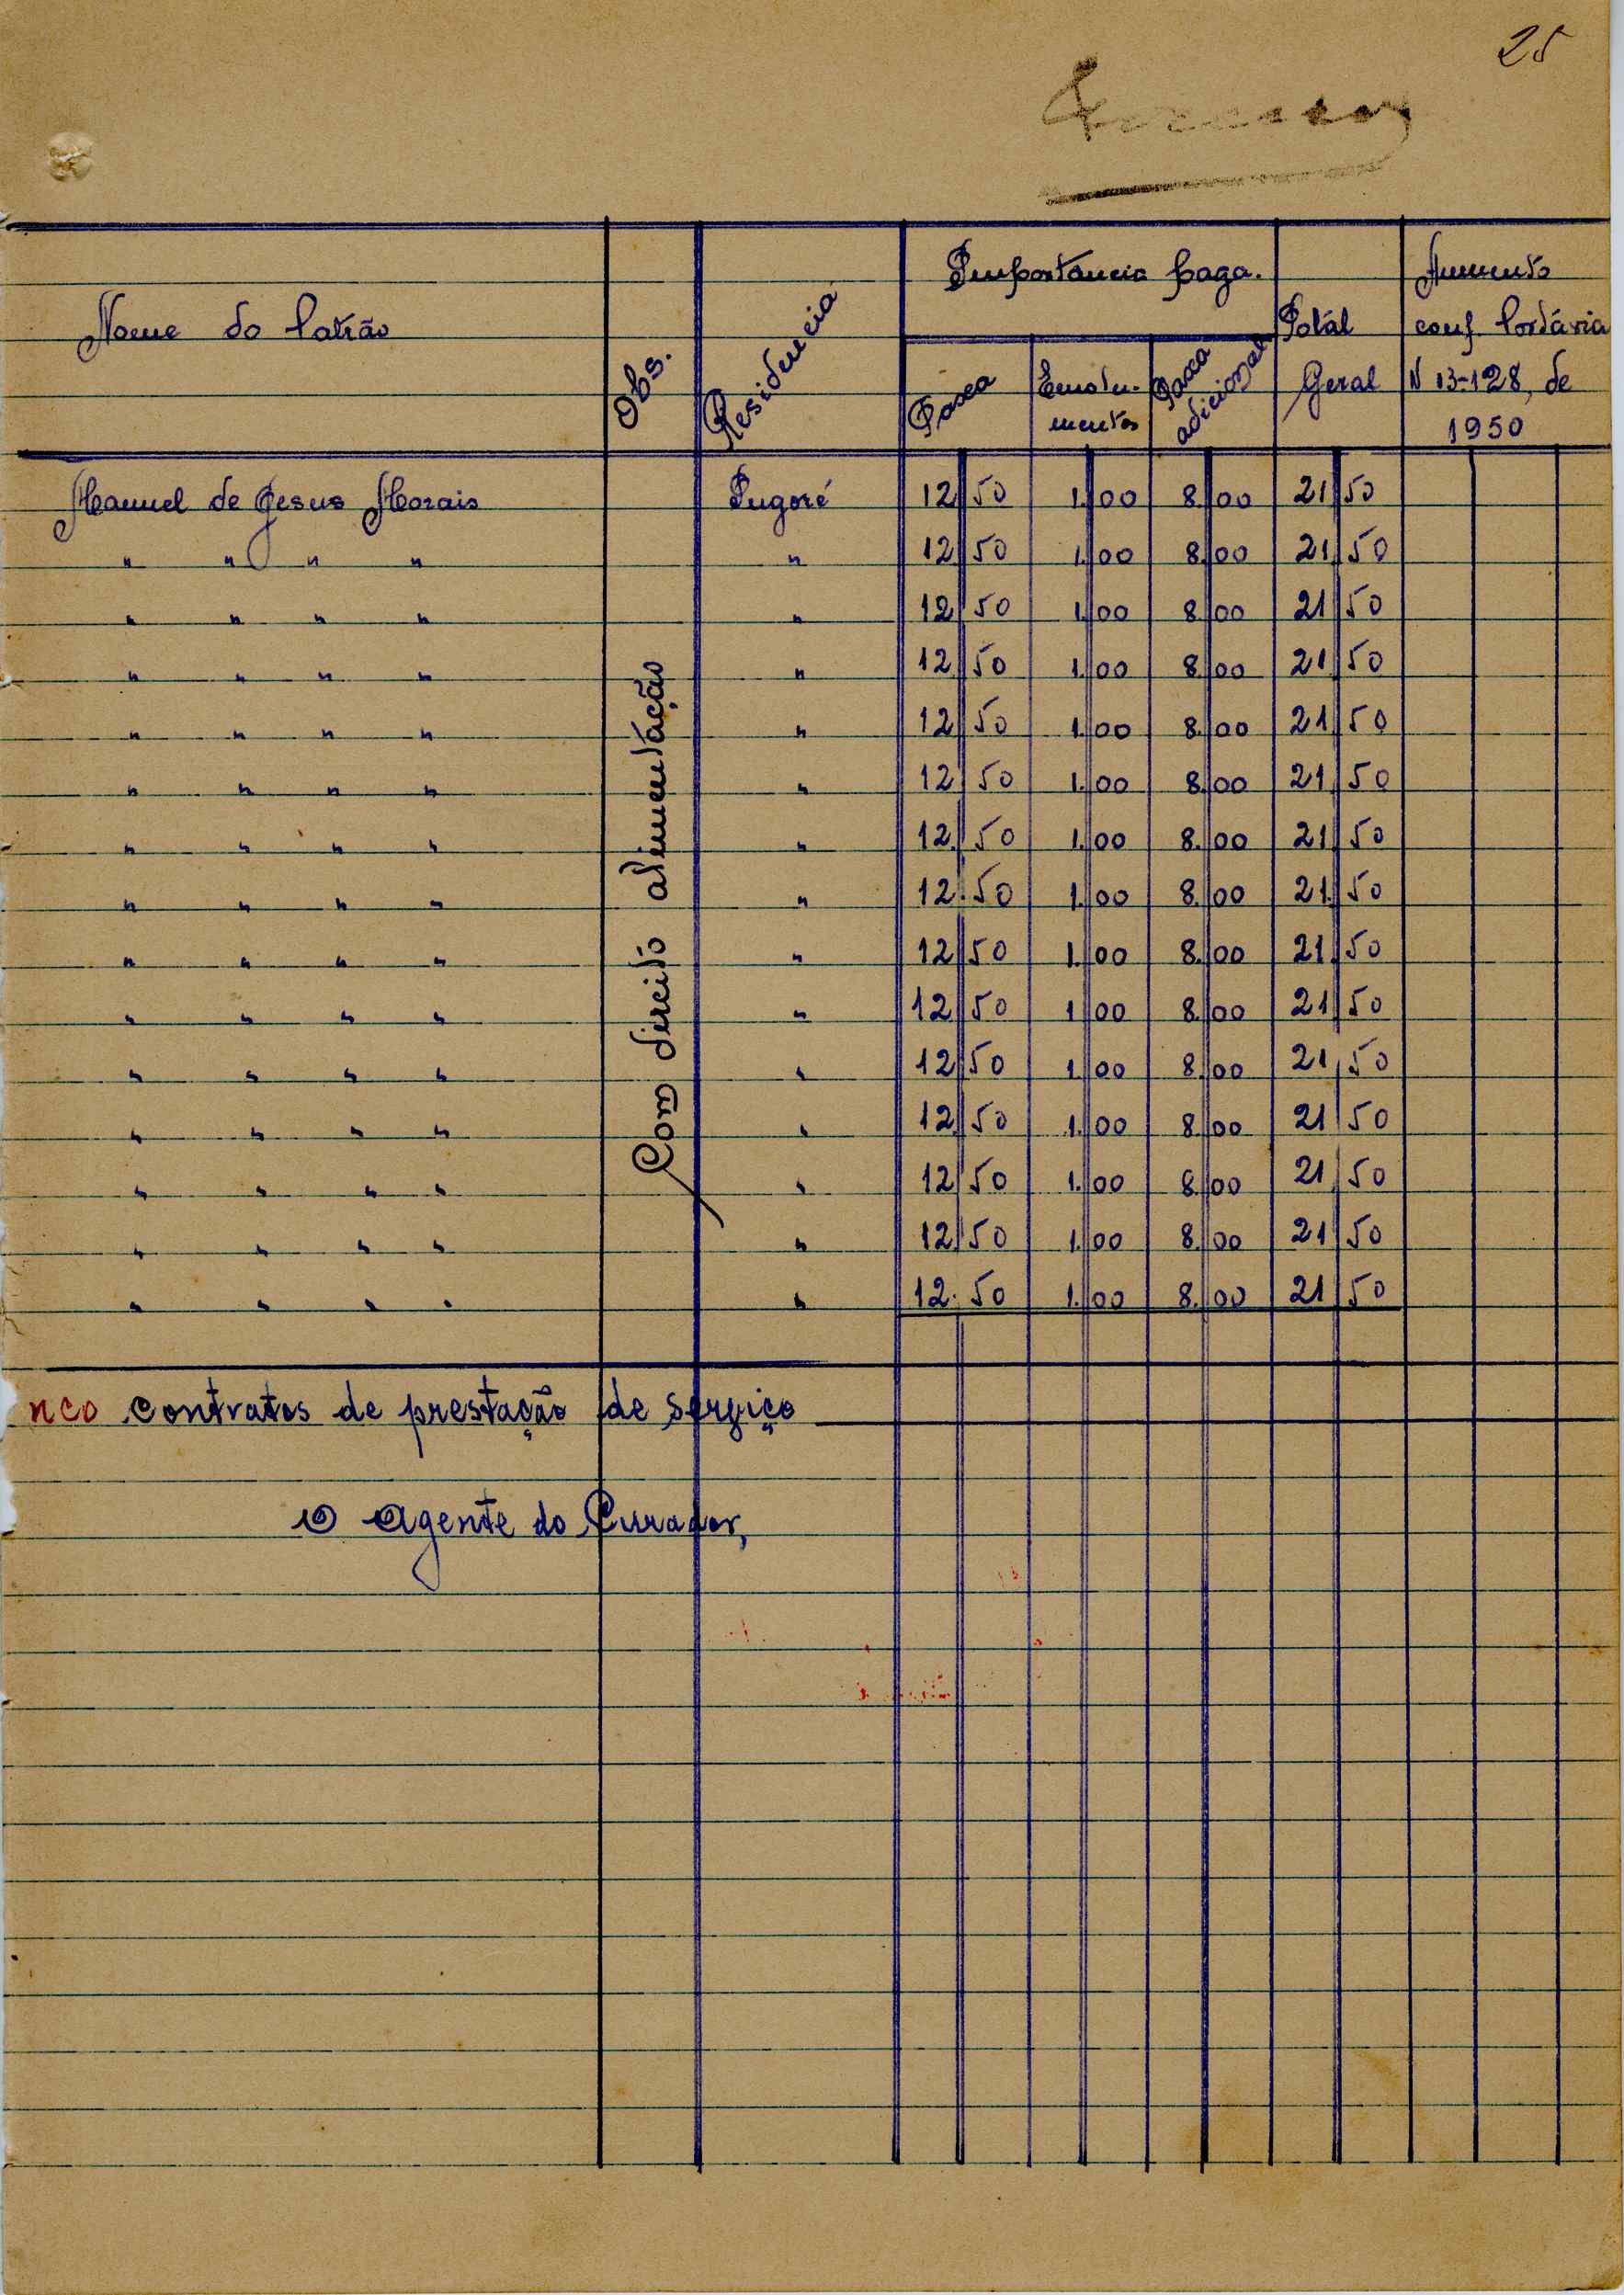 25
Importancia paga.
Aumento
Nome do Patrão
Obs.
Residencia
Totál
conf Portária
Taxa
Emolu-
Taxa
Geral
N 13-128, de
mentos
adicional
1950
Manuel de Jesus Morais Ingoré 12 50 1.00 8.00 21 50
" " " " " 12 50 1.00 8.00 21 50
" " " " " 12 50 1.00 8.00 21 50
" " " " " 12 50 1.00 8.00 21 50
" " " " " 12 50 1.00 8.00 21 50
" " " " " 12 50 1.00 8.00 21 50
" " " " " 12. 50 1.00 8.00 21 50
" " " " " 12. 50 1.00 8.00 21. 50
" " " " " 12 50 1.00 8.00 21 50
" " " " " 12 50 1 00 8.00 21 50
" " " " " 12 50 1.00 8.00 21 50
" " " " " 12 50 1.00 8.00 21 50
" " " " " 12 50 1.00 8.00 21 50
" " " " " 12 50 1.00 8.00 21 50
" " " " " 12. 50 1.00 8.00 21 50
Com direito alimentação
nco contratos de prestação de serviço
O Agente do Curador,